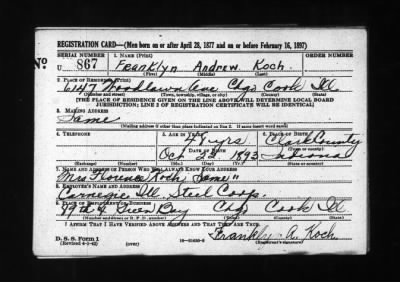 REGISTRATION CARD—(Men born on or after April 28, 1877 and on or before February 16, 1897)
SERIAL NUMBER 1. NAME (Print) ORDER NUMBER
No U 867 Franklyn Andrew Koch
(First) (Middle) (Last)
2. PLACE OF RESIDENCE (Print)
6147 Woodlawn Ave Chgo Cook Ill.
(Number and street) (Town, township, village, or city) (County) (State)
[THE PLACE OF RESIDENCE GIVEN ON THE LINE ABOVE WILL DETERMINE LOCAL BOARD
JURISDICTION; LINE 2 OF REGISTRATION CERTIFICATE WILL BE IDENTICAL]
3. MAILING ADDRESS
Same
(Mailing address if other than place indicated on line 2. If same insert word same)
4. TELEPHONE 5. AGE IN YEARS 6. PLACE OF BIRTH
yrs Clark County
DATE OF BIRTH (Town or county)
Oct 23 1893 Indiana
(Exchange) (Number) (Mo.) (Day) (Yr.) (State or country)
7. NAME AND ADDRESS OF PERSON WHO WILL ALWAYS KNOW YOUR ADDRESS
Mrs Florence Koch, "Same"
8. EMPLOYER'S NAME AND ADDRESS
Carnegie Ill. Steel Corp.
9. PLACE OF EMPLOYMENT OR BUSINESS
Green Bay Chgo Cook Ill
(Number and street or R. F. D. number) (Town) (County) (State)
I AFFIRM THAT I HAVE VERIFIED ABOVE ANSWERS AND THAT THEY ARE TRUE.
D. S. S. Form 1 Franklyn A. Koch
(Revised 4-1-42) (Registrant's signature)